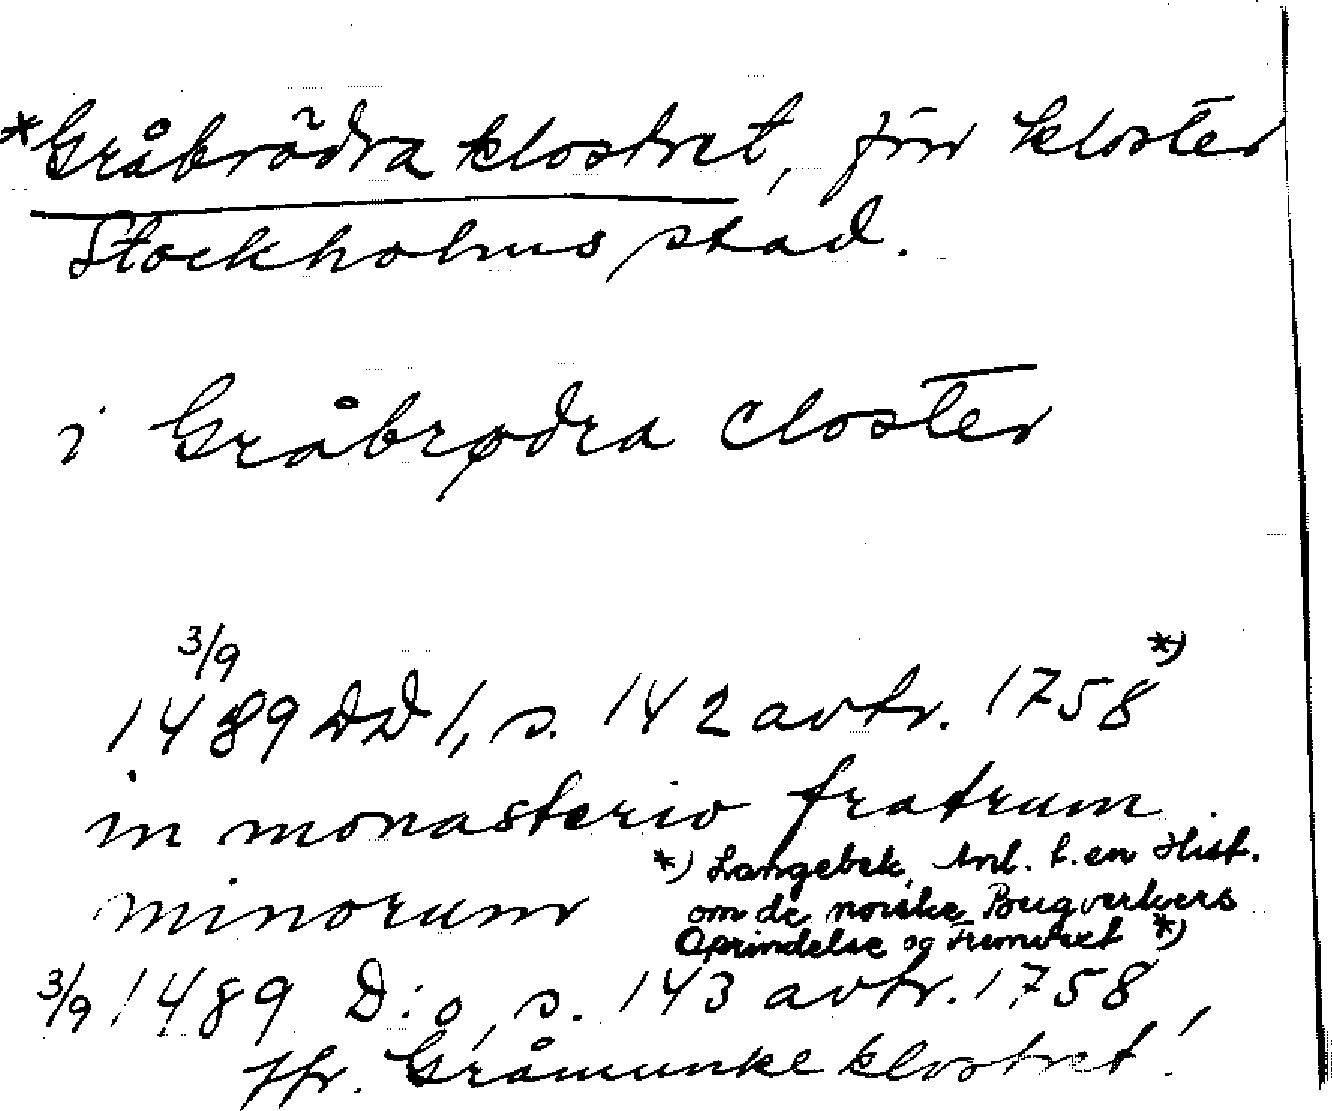 *Gråbrödra klostret, förr kloster
Stockholms stad.
i Gråbrødra closter
3/9
1489 DD 1, s. 142 avtr. 1758 *)
in monasterio fratrum
minorum
*) Langebek, Anl. t. en Hist.
om de norske Bergverkers
Oprindelse og Fremvext *)
3/9 1489 D:o, s. 143 avtr. 1758,
Jfr. Gråmunkeklostret!